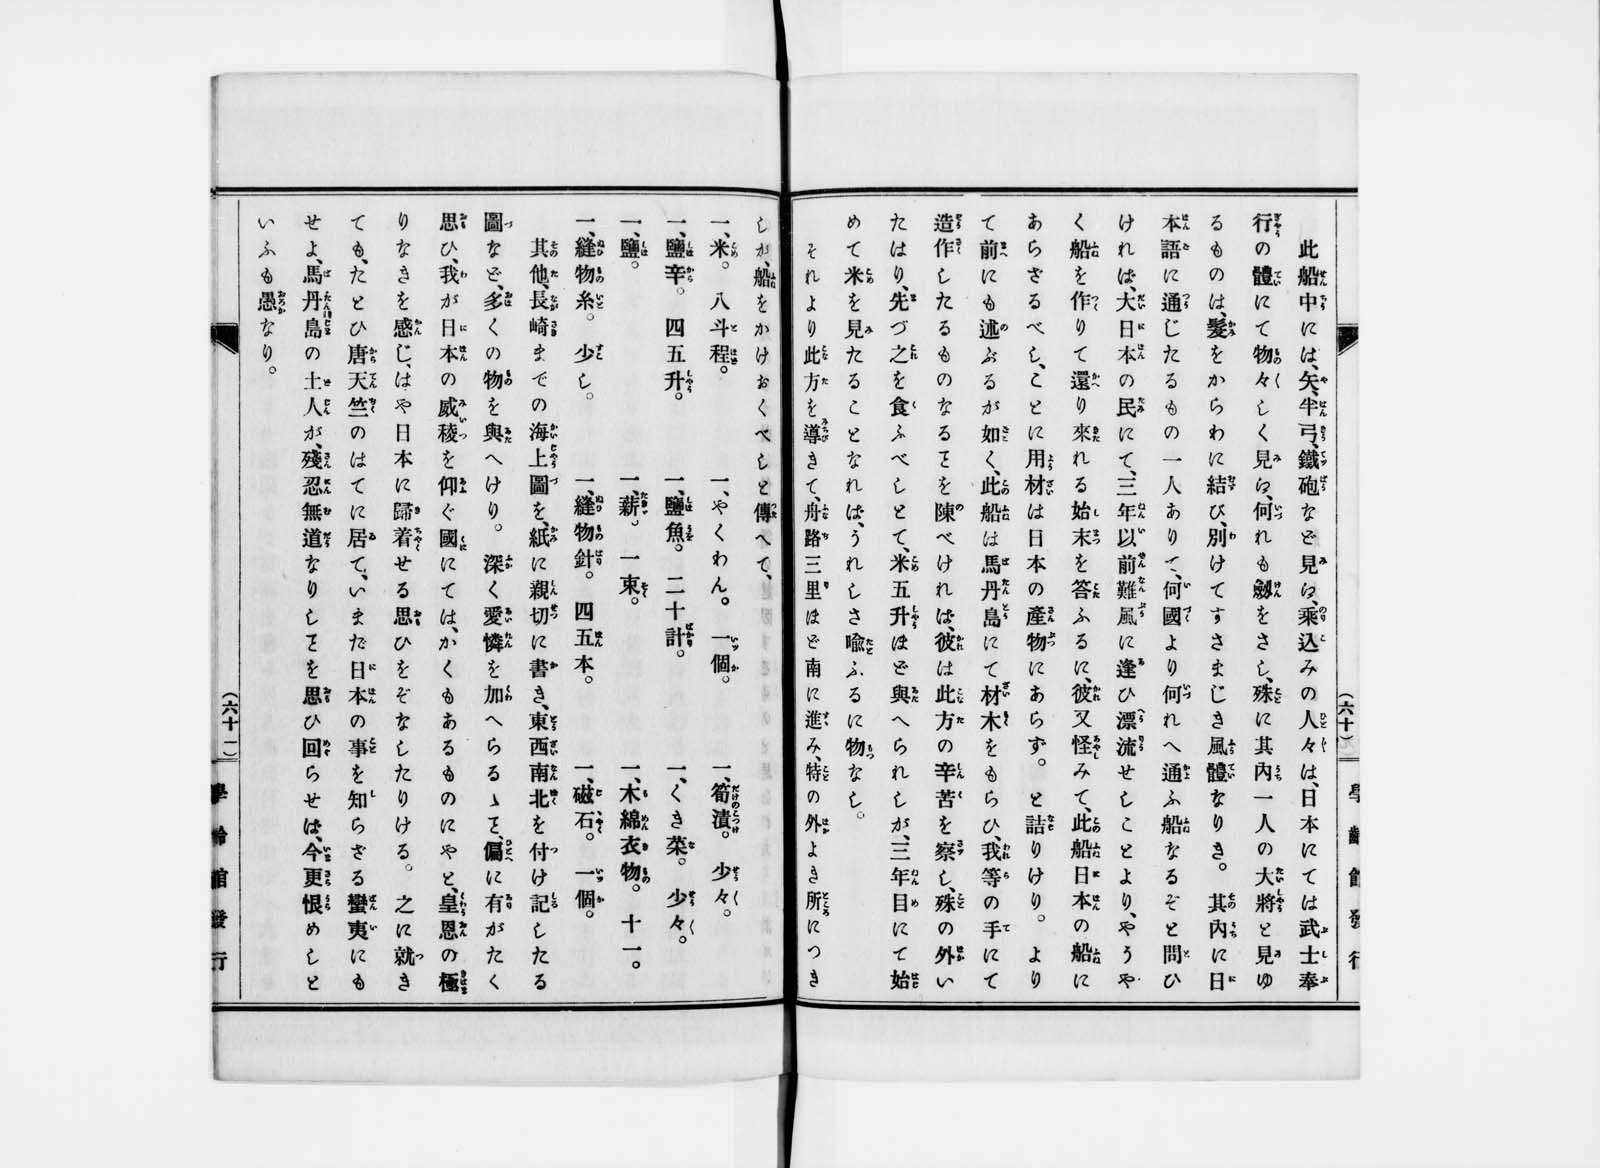 此船中には、矢、半弓、鐵砲など見は、乘込みの人々は、日本にては武士奉
行の體にて物々しく見は、何れも劔をさし、殊に其內一人の大將と見ゆ
るものは、髮をからわに結び、別けてすさまじき風體なりき。其內に日
本語に通じたるもの一人ありて、何國より何れへ通ふ船なるぞと問ひ
ければ、大日本の民にて、三年以前難風に逢ひ漂流せしことより、やうや
く船を作りて還り來れる始末を答ふるに、彼又怪みて、此船日本の船に
あらざるべし、ことに用材は日本の產物にあらず。と詰りけり。より
て前にも述ぶるが如く、此船は馬丹島にて材木をもらひ、我等の手にて
造作したるものなるを陳べければ、彼は此方の辛苦を察し、殊の外い
たはり、先づ之を食ふべしとて、米五升ほど與へられしが、三年目にて始
めて米を見たることなれば、うれしさ喩ふるに物なし。
それより此方を導きて、舟路三里ほど南に進み、特の外よき所につき
(六十)
學齡館發行
しが、船をかけおくべしと傳へて、
一、米。八斗程。 一、やくわん。一個。 一、筍漬。少々。
一、鹽辛。四五升。 一、鹽魚。二十計。 一、くき菜。少々。
一、鹽。 一、薪。一束。 一、木綿衣物。十一。
一、縫物糸。少し。 一、縫物針。四五本。 一、磁石。一個。
其他、長崎までの海上圖を、紙に親切に書き、東西南北を付け記したる
圖など、多くの物を與へけり。深く愛憐を加へらるゝを、偏に有がたく
思ひ、我が日本の威稜を仰ぐ國にては、かくもあるものにやと、皇恩の極
りなきを感じ、はや日本に歸着せる思ひをぞなしたりける。之に就き
ても、たとひ唐天竺のはてに居て、いまだ日本の事を知らざる蠻夷にも
せよ、馬丹島の土人が、殘忍無道なりしを思ひ回らせは、今更恨めしと
いふも愚なり。
(六十一)
學齡館發行